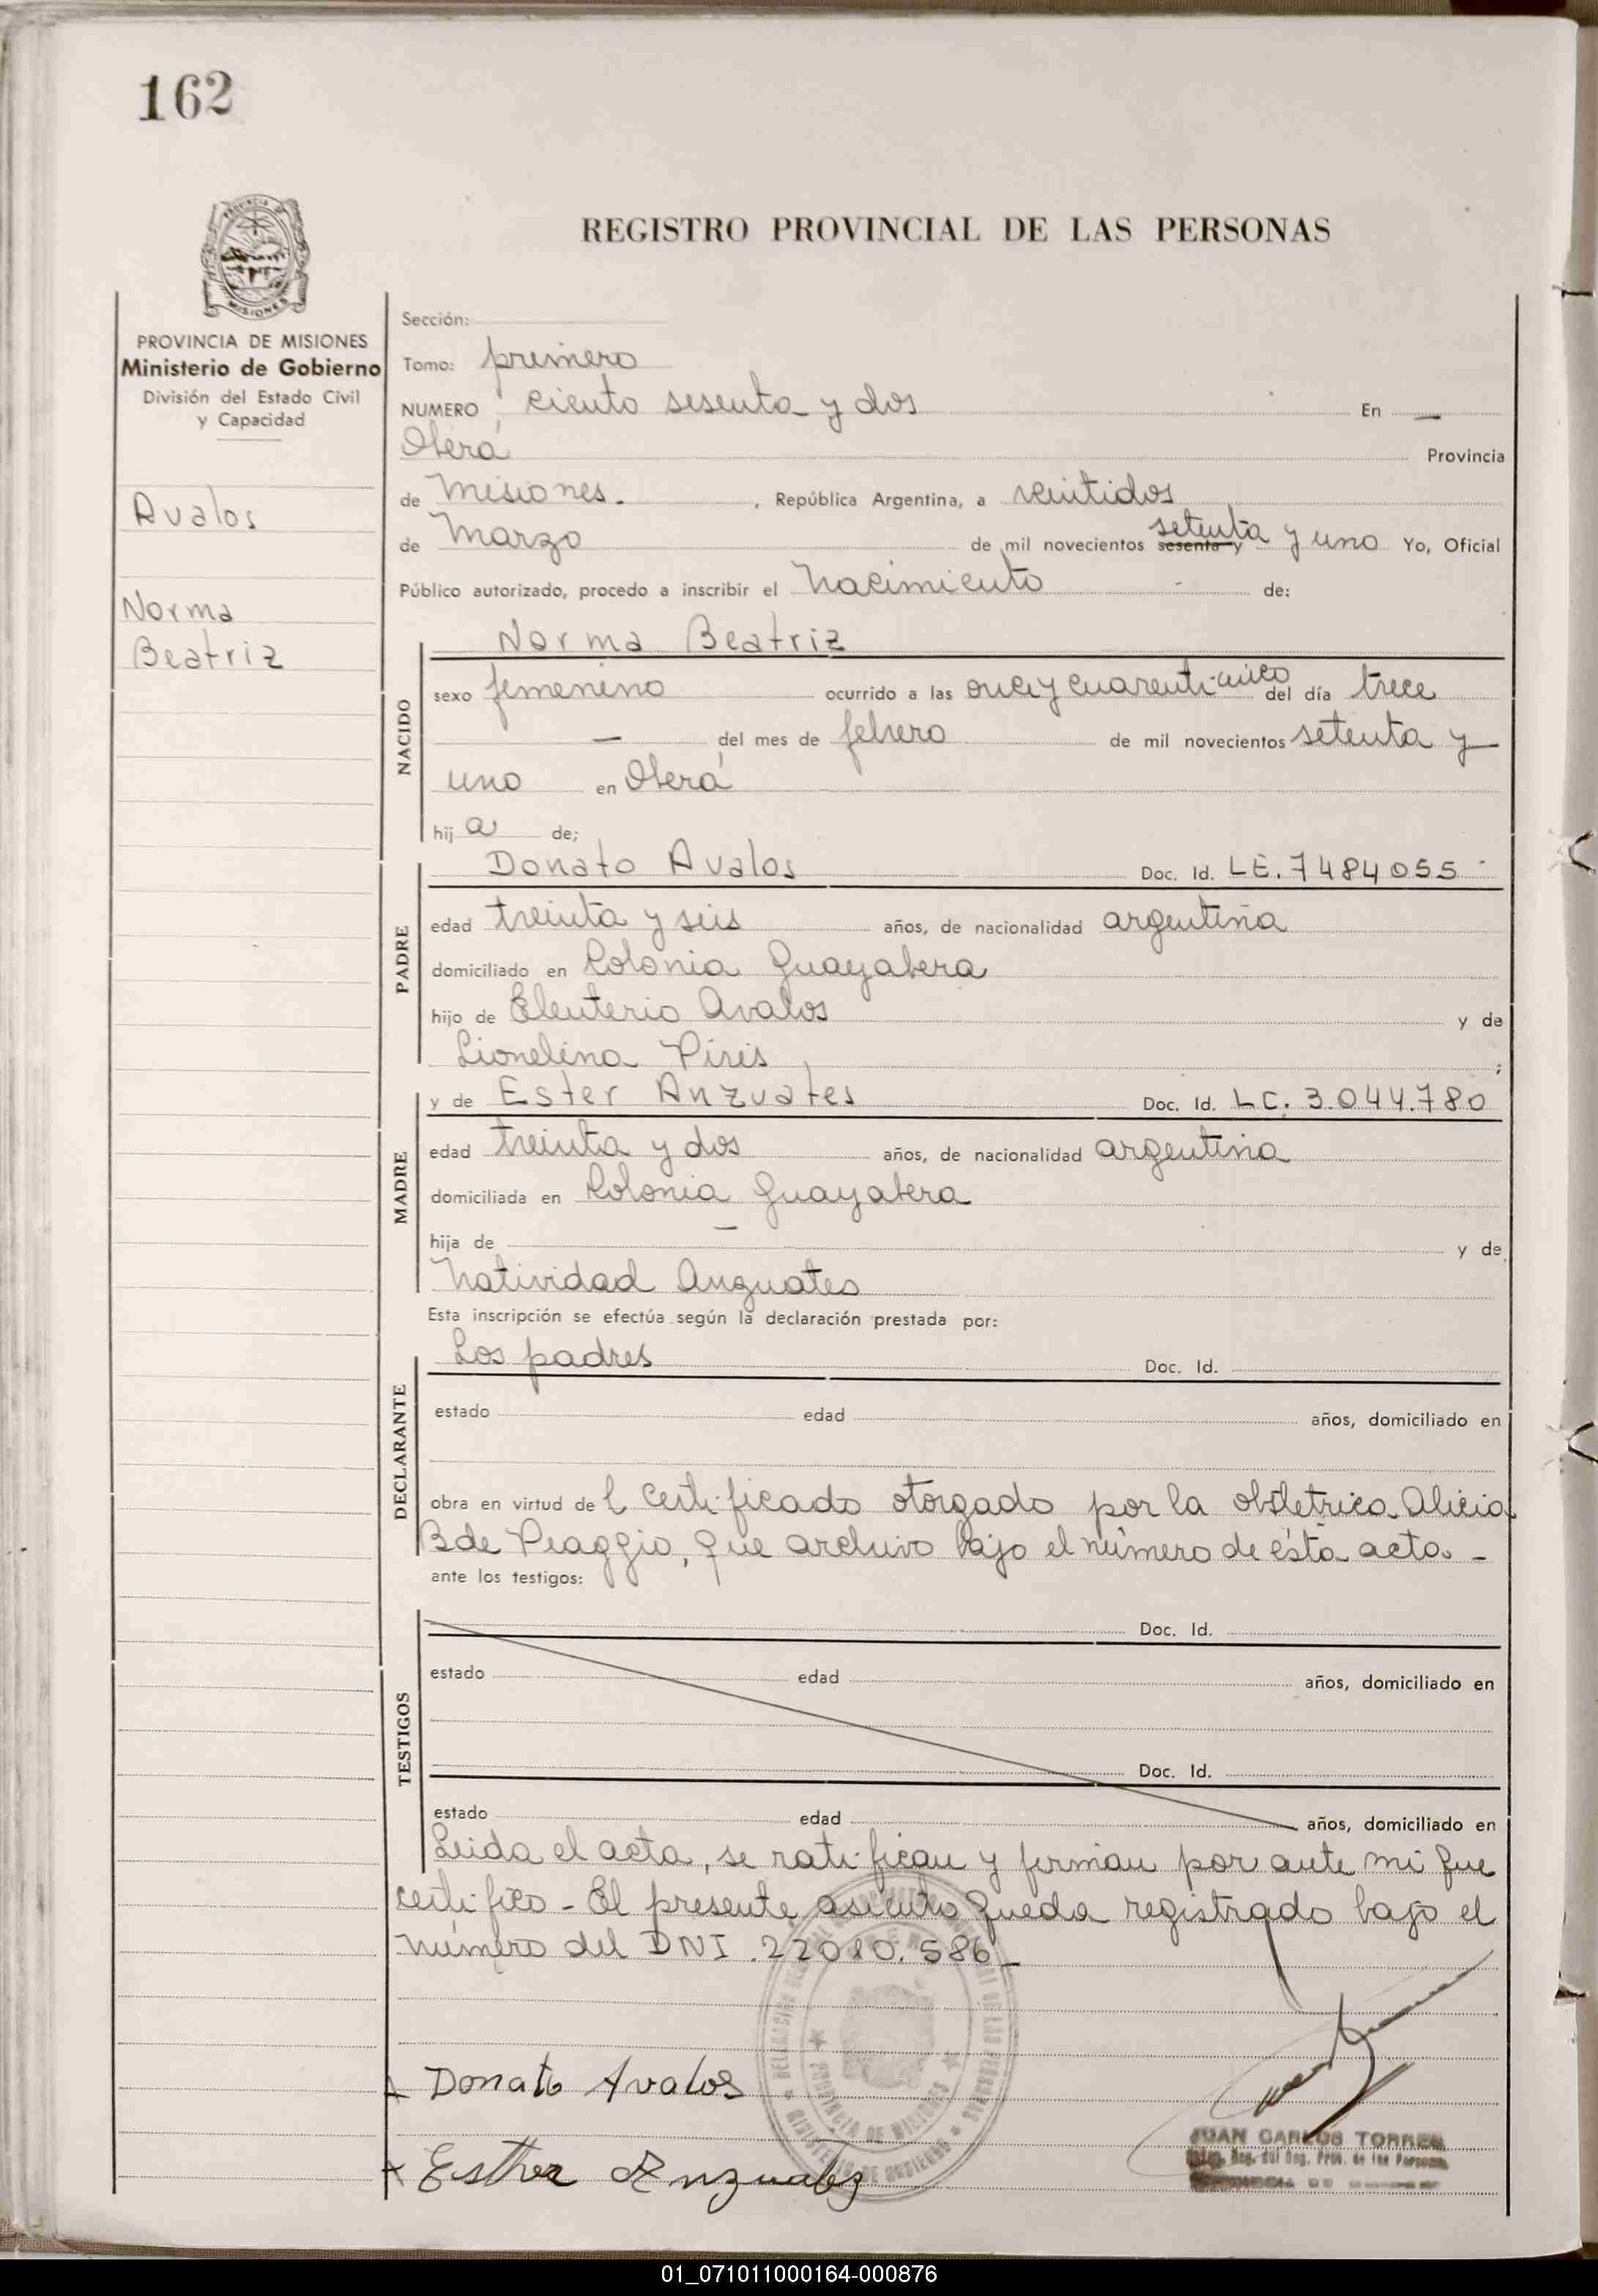 162
REGISTRO PROVINCIAL DE LAS PERSONAS
MISIONES
PROVINCIA DE MISIONES
Ministerio de Gobierno
División del Estado Civil
y Capacidad
Avalos
Norma
Beatriz
Sección:
Tomo: primero
NUMERO ciento sesenta y dos En —
Oberá Provincia
de Misiones. , República Argentina, a veintidos
de Marzo de mil novecientos sesenta y setenta y uno Yo, Oficial
Público autorizado, procedo a inscribir el Nacimiento - de:
NACIDO
Norma Beatriz
sexo femenino ocurrido a las once y cuarenticinco del día trece
— del mes de febrero de mil novecientos setenta y
uno en Oberá
hij a de;
PADRE
Donato Avalos Doc. Id. LE. 7484055 -
edad treinta y seis años, de nacionalidad argentina
domiciliado en Colonia Guayabera
hijo de Eleuterio Avalos y de
Lionelina Piris ;
MADRE
y de Ester Anzuates Doc. Id. LC. 3.044.780
edad treinta y dos años, de nacionalidad argentina
domiciliada en Colonia Guayabera
hija de — y de
Natividad Anzuates
Esta inscripción se efectúa según la declaración prestada por:
DECLARANTE
Los padres Doc. Id.
estado edad años, domiciliado en
obra en virtud de l certificado otorgado por la obstetrica Alicia
B de Piaggio, que archivo bajo el número de ésta acta -
ante los testigos:
TESTIGOS
Doc. Id.
estado edad años, domiciliado en
Doc. Id.
estado edad años, domiciliado en
Leida el acta, se ratifican y firman por ante mi que
certifico - El presente asiento queda registrado bajo el
número del DNI .22010.586 -
PROVINCIA DE MISIONES
MINISTERIO DE GOBIERNO
Donato Avalos
Esther Anzuatez
JUAN CARLOS TORRES
01_071011000164-000876